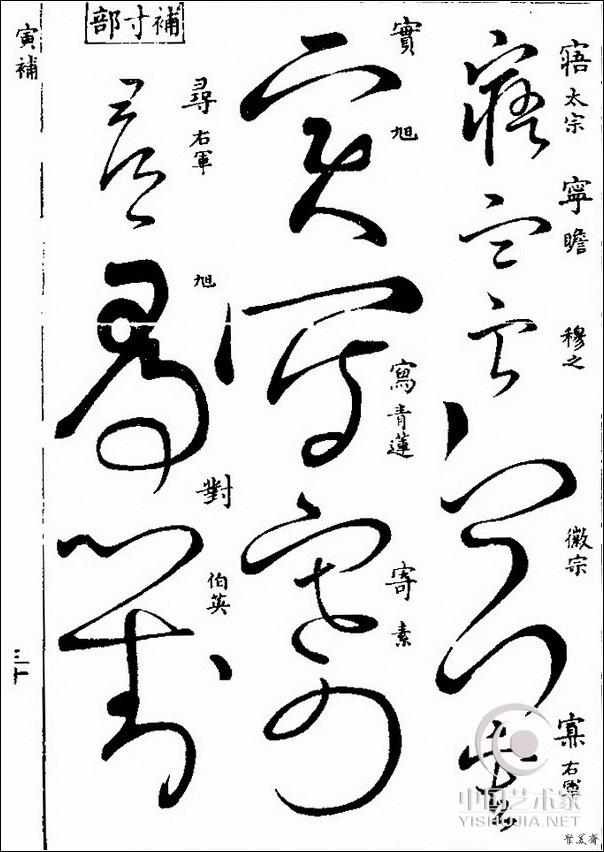 寤 太宗
寧 瞻
穆之
徽宗
右軍
實 旭
寫 青蓮
寄 素
補寸部
尋 右軍
旭
對 伯英
寅補
三十
中国艺术家
YISHUJIA.NET